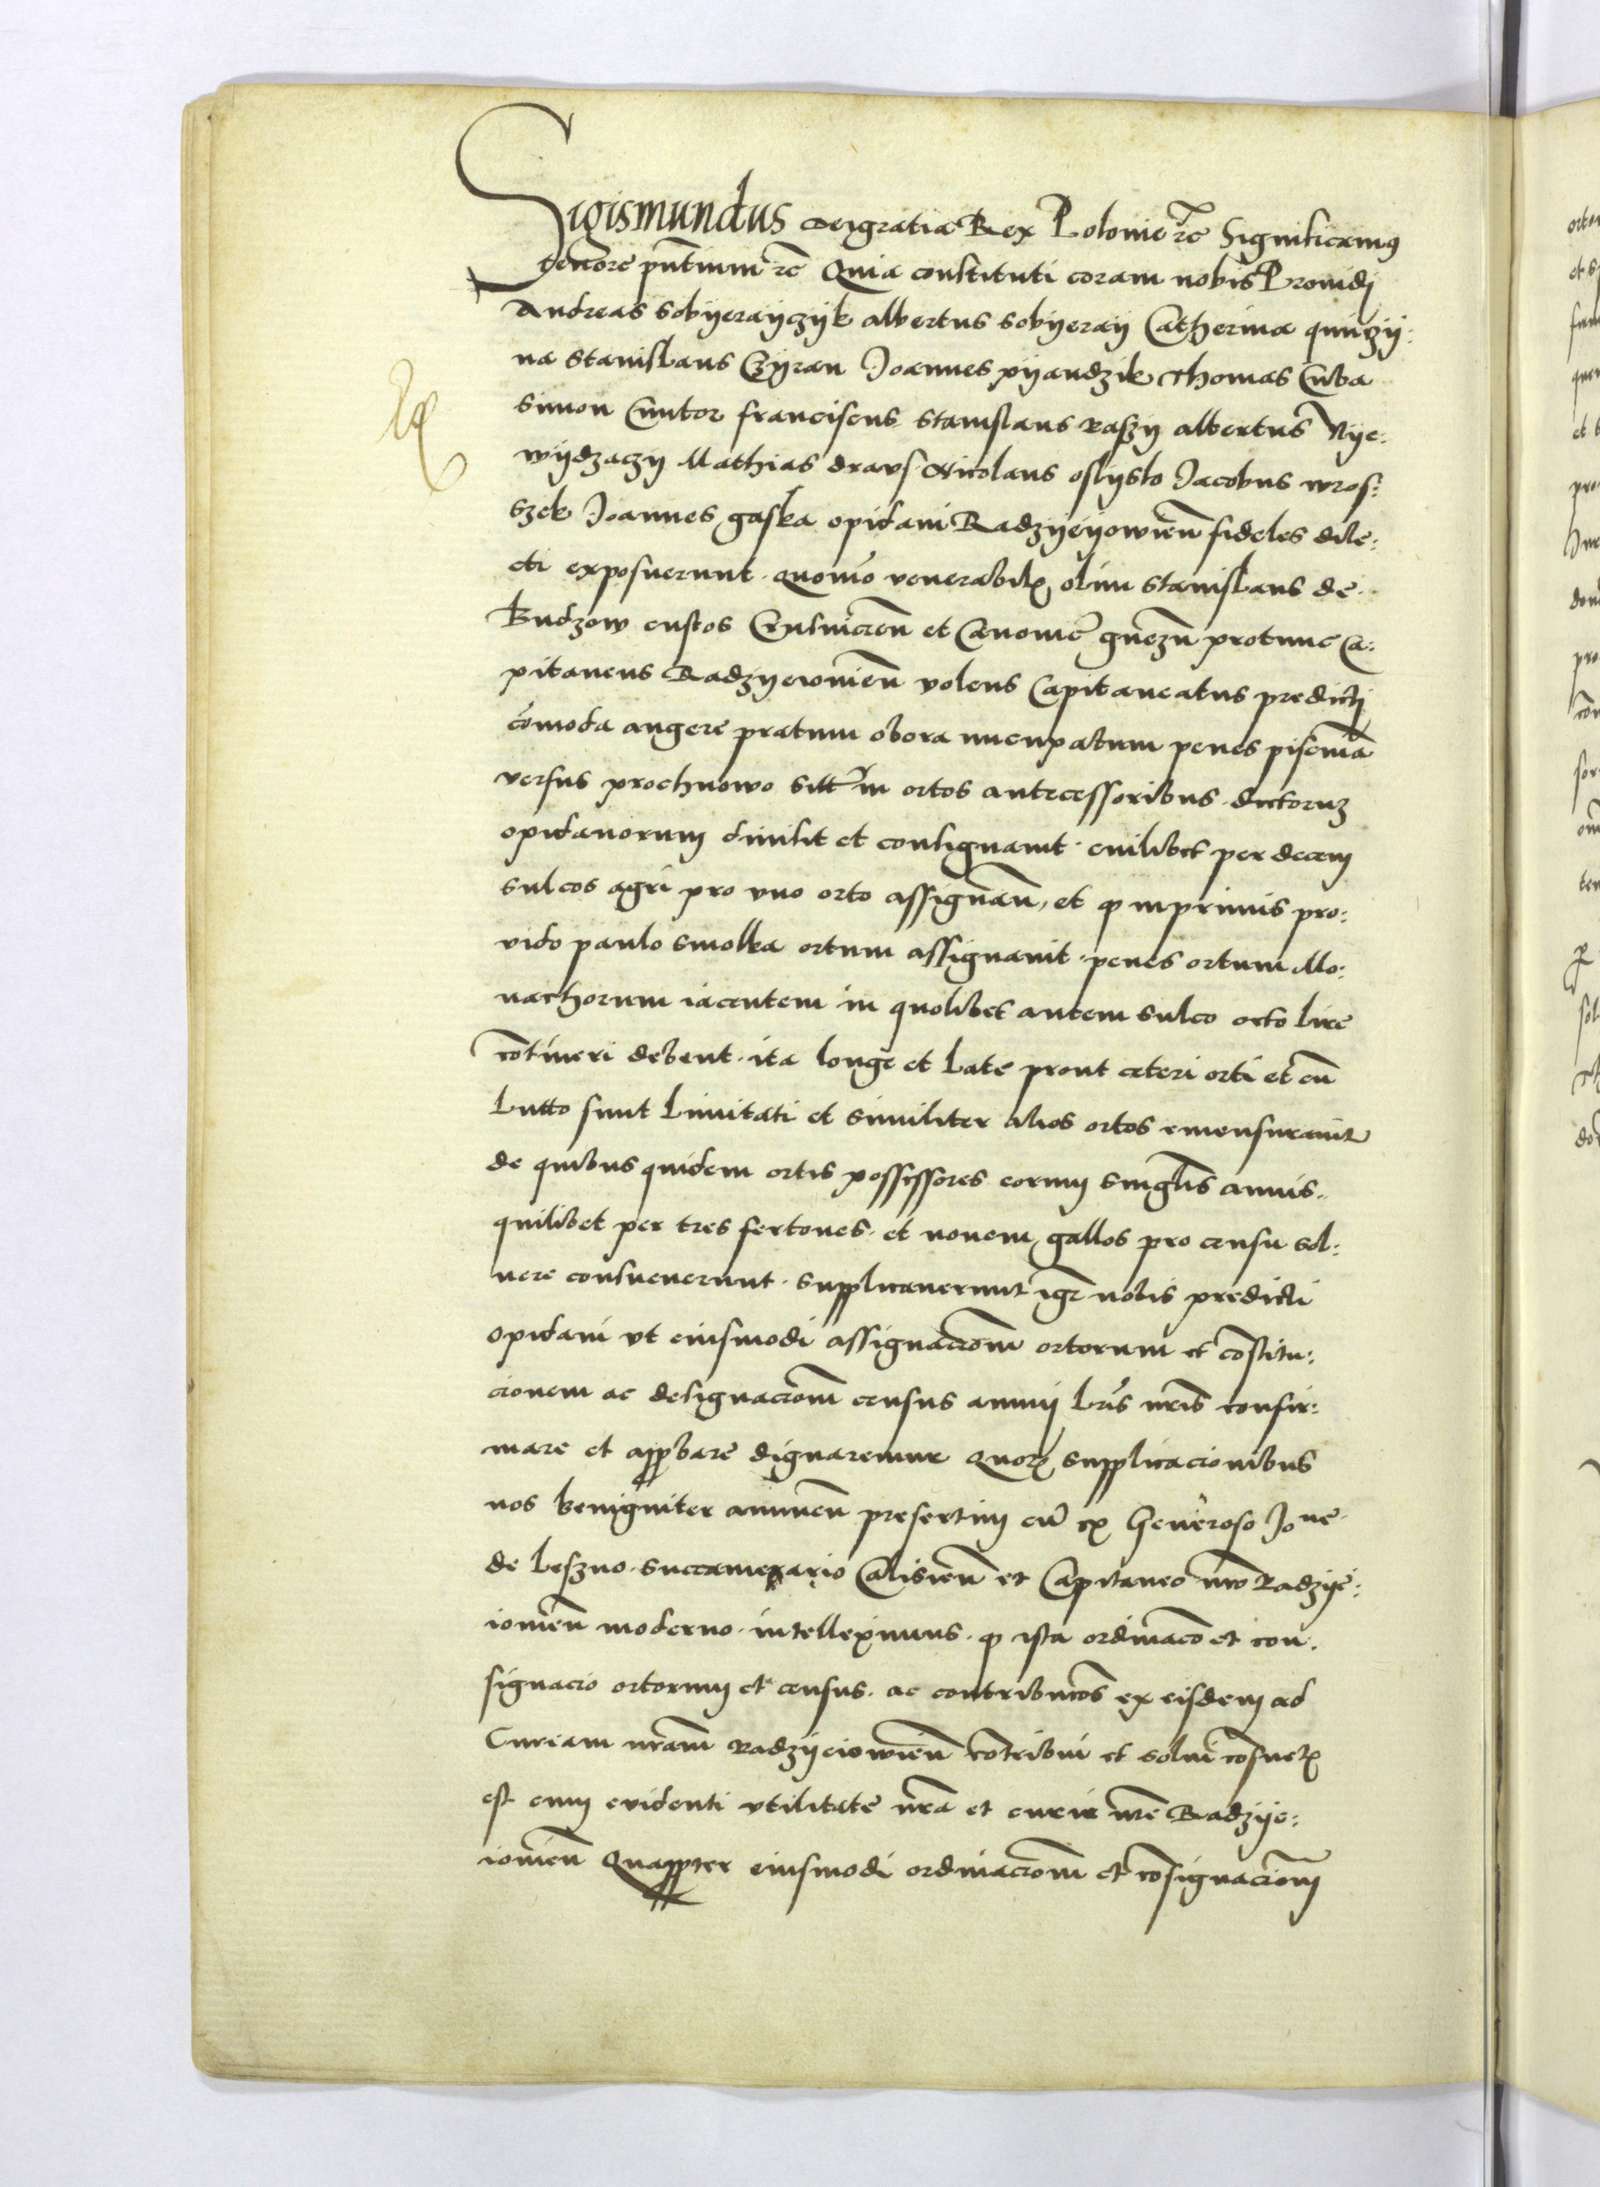 Sigismundus deigratia Rex Polonie rc Significamus
tenore pntium rc Quia constituti coram nobis Prouidi
Andreas sobyerayczyk albertus sobyeray Catherina quiczy:
na Stanislaus Czyran Joannes pyandzik Thomas Cuba
simon Cuntor franciscus Stanislaus raszy albertus Nye:
wydzaczy Mathias draus Nicolaus oslyslo Jacobus wros:
szek Joannes gaska opidani Radzyeyowien fideles dile:
cti exposuerunt quomo venerabilis olim Stanislaus de
Budzow custos Crusuicien et Canonic gnezn protunc Ca:
pitaneus Radzyeiouien volens Capitaneatus predicti
comoda augere pratum obora nuncupatum penes piscina
versus prochnowo sitt in ortos antecessoribus dictorum
opidanorum diuisit et consignauit cuilibet per decem
sulcos agri pro vno orto assignan, et q inprimis pro:
vido paulo smolka ortum assignauit penes ortum Mo:
nachorum iacentem in quolibet autem sulco octo lire
contineri debent ita longe et late prout ceteri orti et cu
Lutto sunt Limitati et similiter alios ortos emensurauit
de quibus quidem ortis possessores eorum singlis annis
quilibet per tres fertones et nouem gallos pro censu sol:
uere consueuerunt supplicauerunt igr nobis predicti
opidani vt eiusmodi assignacionem ortorum et constitu:
cionem ac designacionem census annui lris nris confir:
mare et approbare dignaremur Quor supplicacionibus
nos benigniter annuen presertim cu ex Generoso Joanne
de leszno succamerario Calisien et Capitaneo nro Radzye:
iouien moderno intelleximus q ista ordinacio et con
signacio ortorum et census ac contribucos ex eisdem ad
Curiam nram Radzyeiowien contribui et solui consuet
est cum evidenti vtilitate nra et curie nre Radzye:
iouien Quapropter eiusmodi ordinacionem et consignacionem